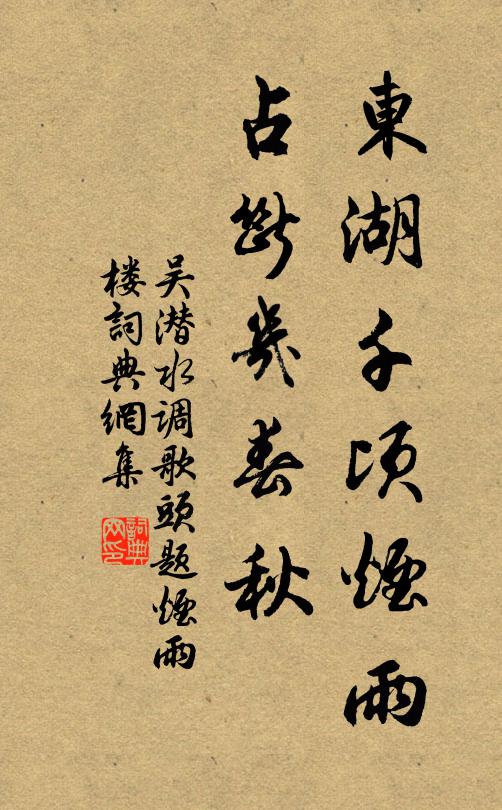 東湖千頃煙雨
占斷幾春秋
吴潜水调歌頭題煙雨
楼詞典網集
詞典网印